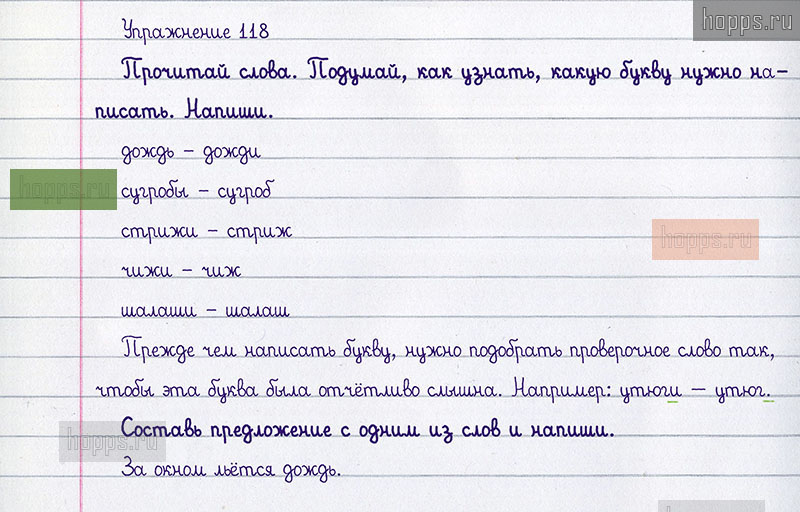 hopps.ru
Упражнение 118
Прочитай слова. Подумай, как узнать, какую букву нужно на-
писать. Напиши.
дождь – дожди
hopps.ru
сугробы – сугроб
стрижи – стриж
hopps.ru
чижи – чиж
шалаши – шалаш
Прежде чем написать букву, нужно подобрать проверочное слово так,
чтобы эта буква была отчётливо слышна. Например: утюги — утюг.
Составь предложение с одним из слов и напиши.
hopps.ru
За окном льётся дождь.